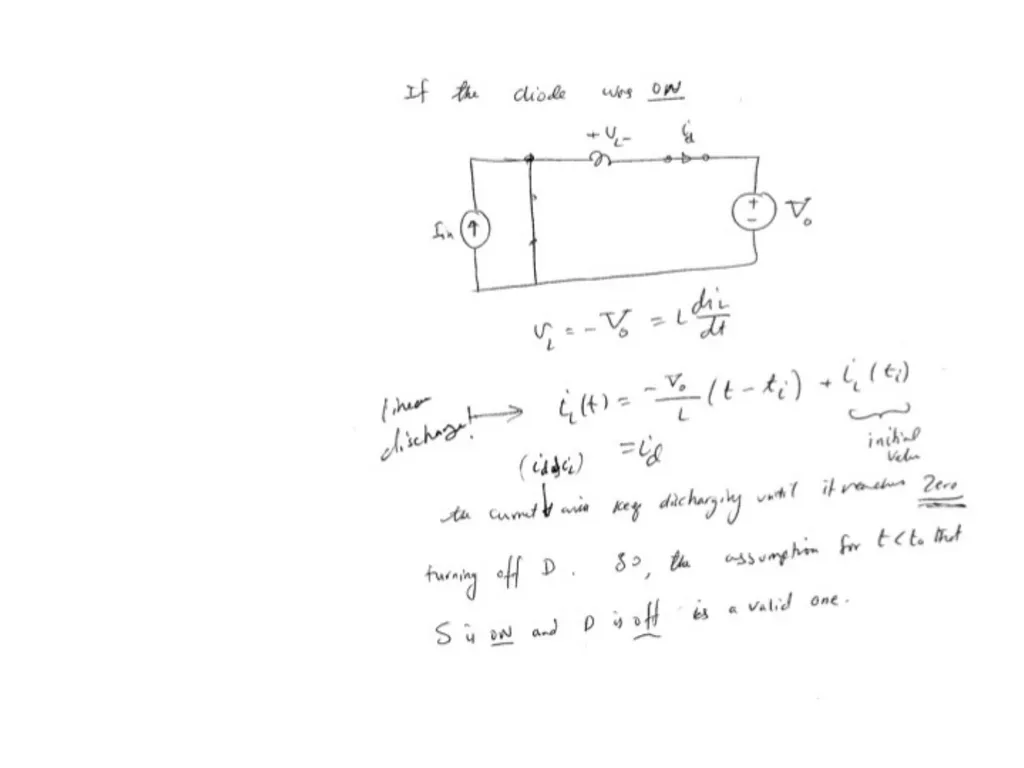 If the diode was ON
+ V_L -
i_d
I_in
+
-
V_o
V_L = - V_o = L di_L/dt
linear discharge! → i_L(t) = -V_o/L (t - t_i) + i_L(t_i)
initial value
(i_d & i_L) = i_d
the current keep discharging until it reaches Zero
turning off D. So, the assumption for t < t_o that
S is ON and D is off is a valid one.